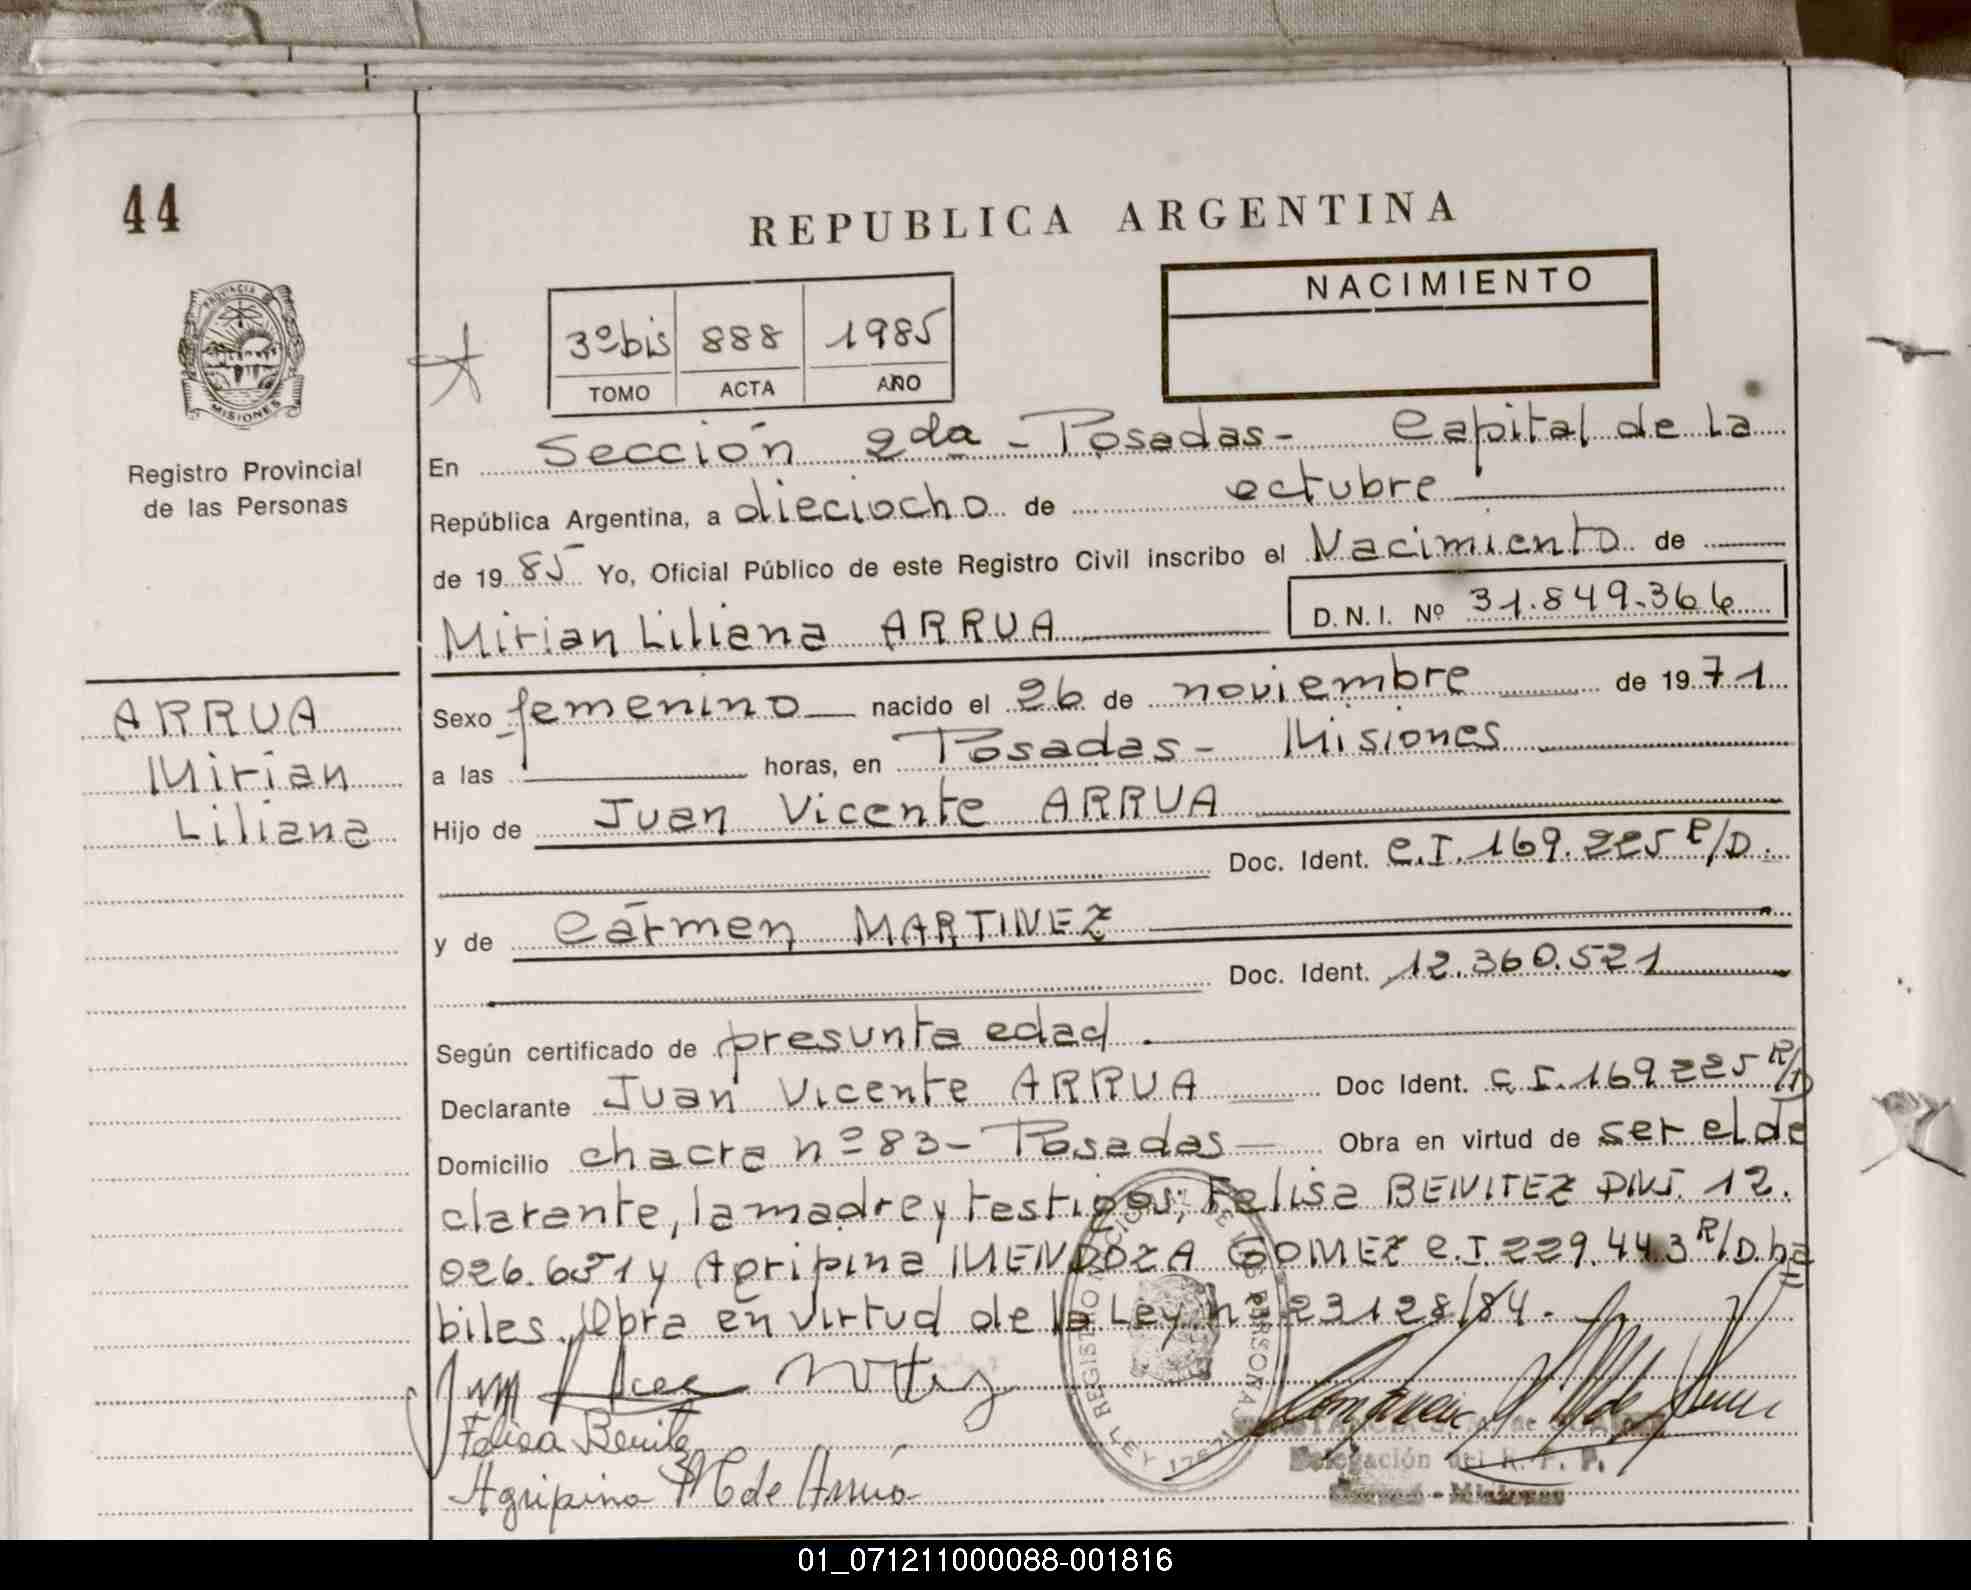 44
REPUBLICA ARGENTINA
PROVINCIA
MISIONES
Registro Provincial
de las Personas
3º bis 888 1985
TOMO ACTA AÑO
NACIMIENTO
En Sección 2da - Posadas - Capital de la
República Argentina, a dieciocho de octubre
de 1985 Yo, Oficial Público de este Registro Civil inscribo el Nacimiento de
Mirian Liliana ARRUA D.N.I. Nº 31.849.366
ARRUA
Mirian
Liliana
Sexo femenino nacido el 26 de noviembre de 1971
a las horas, en Posadas - Misiones
Hijo de Juan Vicente ARRUA
Doc. Ident. C.I. 169.225 R/D.
y de Cármen MARTINEZ
Doc. Ident. 12.360.521
Según certificado de presunta edad.
Declarante Juan Vicente ARRUA Doc Ident. C.I. 169.225 R/D
Domicilio chacra nº 83 - Posadas Obra en virtud de ser el de
clarante, la madre y testigos; Felisa BENITEZ DNI. 12.
026.651 y Agripina MENDOZA GOMEZ C.I 229.443 R/D. há
biles. Obra en virtud de la Ley nº 23128/84.
Felisa Benite
Agripina M de Arrúa
REGISTRO DE LAS PERSONAS
LEY 17671
Delegación del R. P. P.
- Misiones
01_071211000088-001816